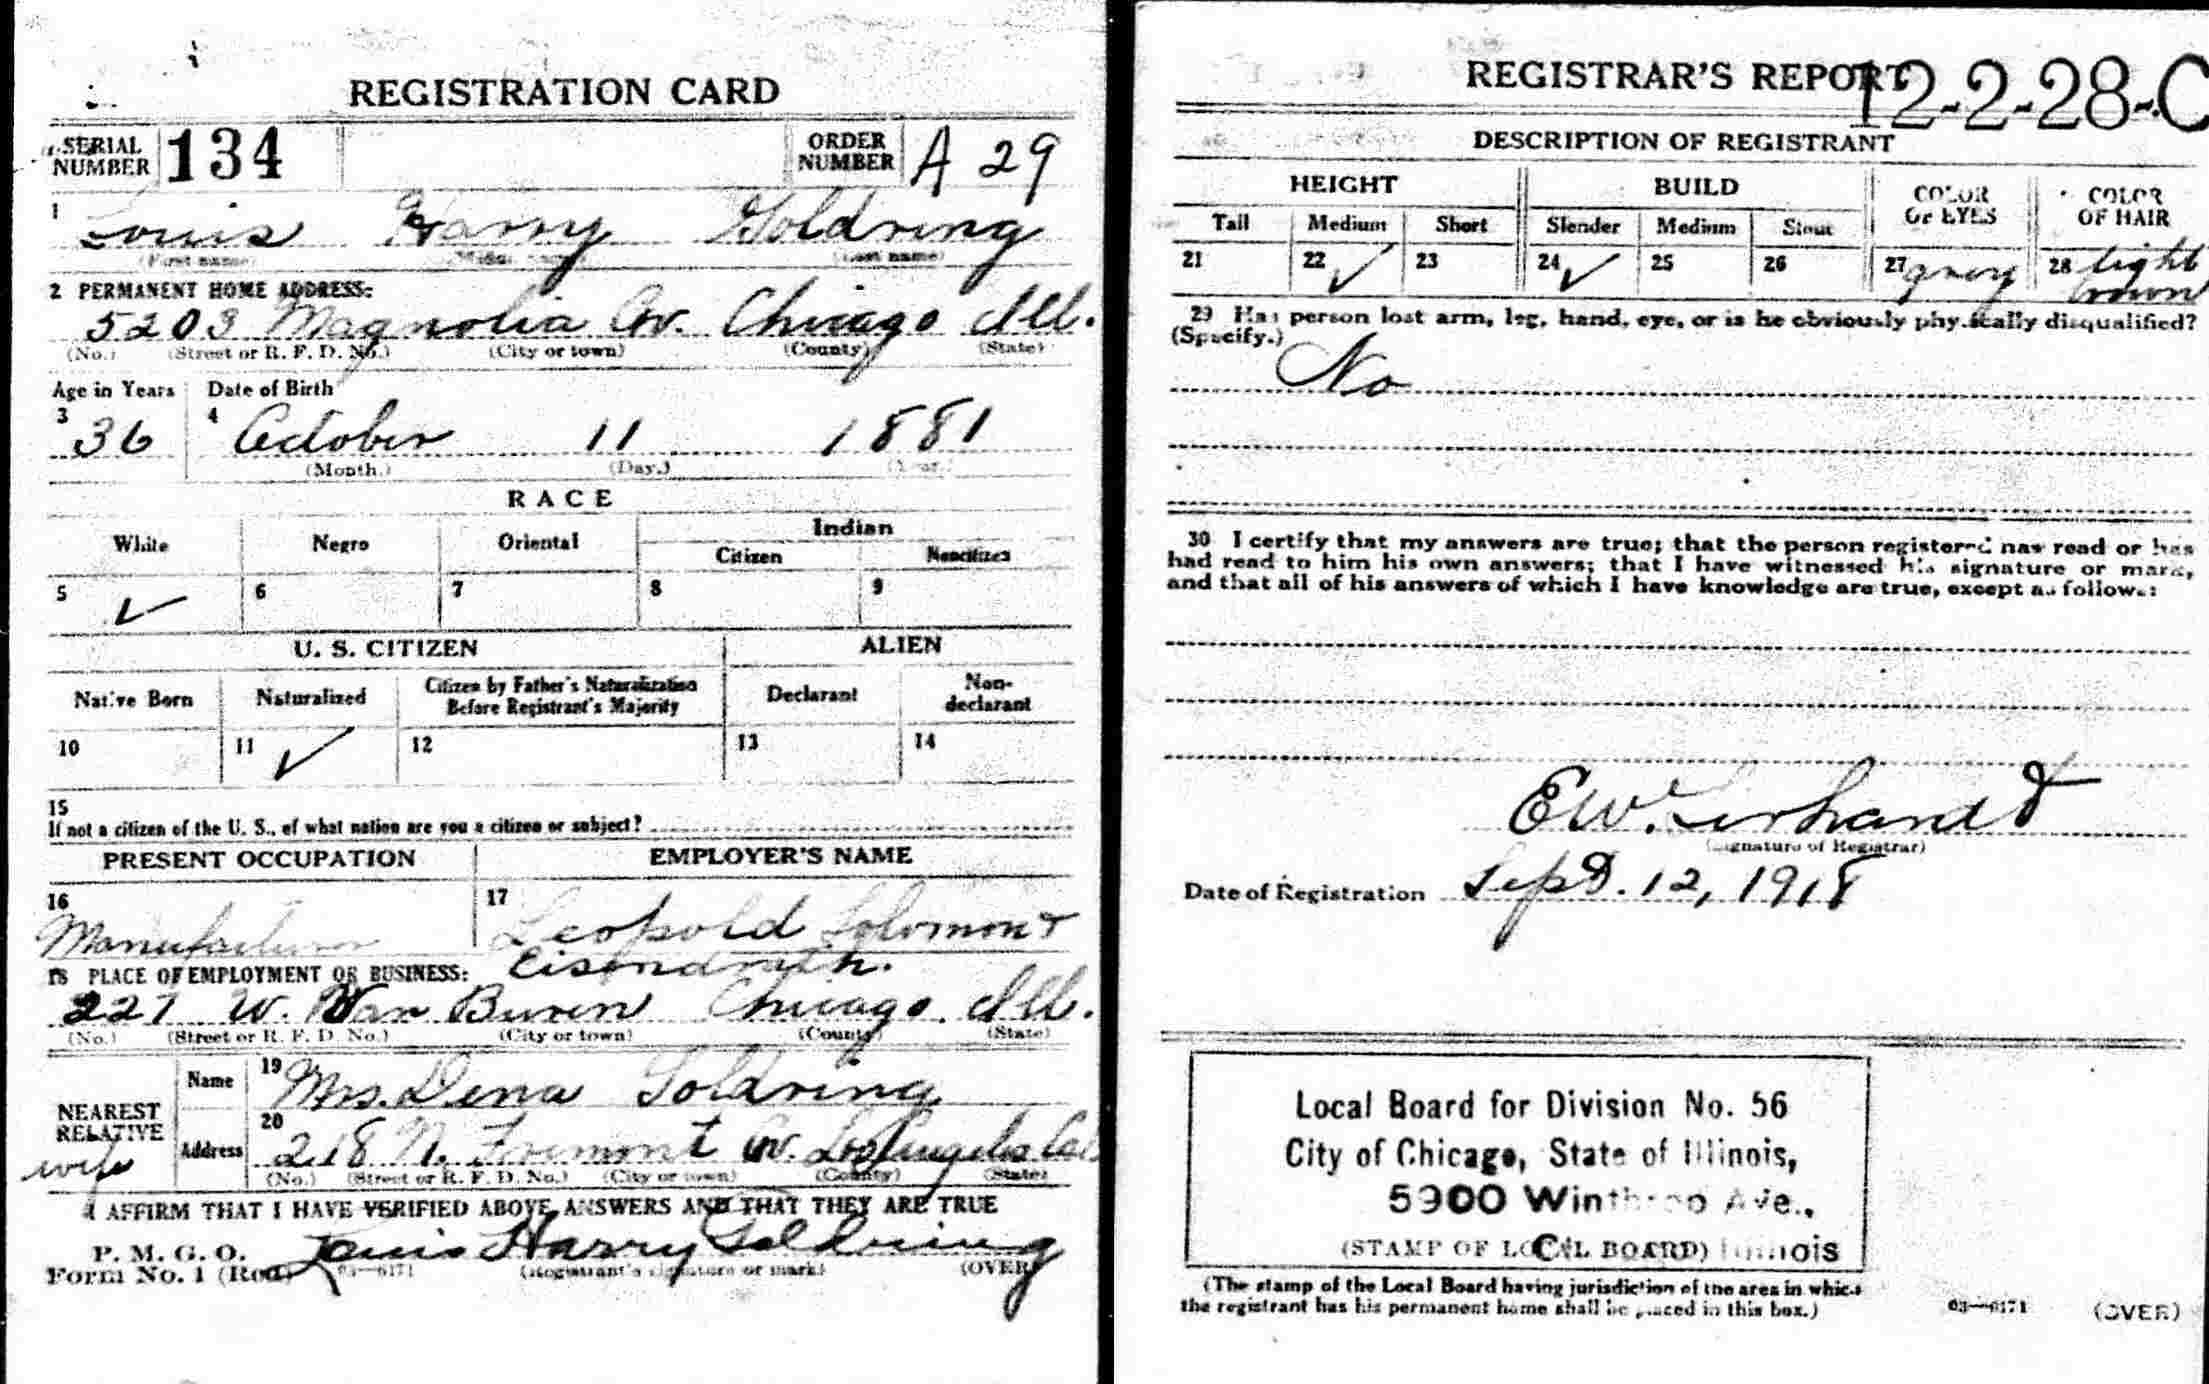 REGISTRATION CARD
SERIAL NUMBER 134 ORDER NUMBER A 29
1 Louis Harry Goldring
(First name) (Middle name) (Last name)
2 PERMANENT HOME ADDRESS:
5203 Magnolia Av. Chicago Ill.
(No.) (Street or R. F. D. No.) (City or town) (County) (State)
Age in Years Date of Birth
3 36 4 October 11 1881
(Month.) (Day.) (Year.)
RACE
White Negro Oriental Indian
Citizen Noncitizen
5 ✓ 6 7 8 9
U. S. CITIZEN ALIEN
Native Born Naturalized Citizen by Father's Naturalization Before Registrant's Majority Declarant Non-declarant
10 11 ✓ 12 13 14
15
If not a citizen of the U. S., of what nation are you a citizen or subject?
PRESENT OCCUPATION EMPLOYER'S NAME
16 Manufacturer 17 Leopold Solomon &
18 PLACE OF EMPLOYMENT OR BUSINESS: Eisendrath.
227 W. Van Buren Chicago Ill.
(No.) (Street or R. F. D. No.) (City or town) (County) (State)
NEAREST RELATIVE wife
Name 19 Mrs. Dena Goldring
Address 20 218 N. Fremont Av. Los Angeles Cal
(No.) (Street or R. F. D. No.) (City or town) (County) (State)
I AFFIRM THAT I HAVE VERIFIED ABOVE ANSWERS AND THAT THEY ARE TRUE
P. M. G. O.
Form No. 1 (Red) 03—6171 Louis Harry Goldring
(Registrant's signature or mark) (OVER)
REGISTRAR'S REPORT 12-2-28-C
DESCRIPTION OF REGISTRANT
HEIGHT BUILD COLOR OF EYES COLOR OF HAIR
Tall Medium Short Slender Medium Stout
21 22 ✓ 23 24 ✓ 25 26 27 gray 28 light brown
29 Has person lost arm, leg, hand, eye, or is he obviously physically disqualified?
(Specify.)
No
30 I certify that my answers are true; that the person registered has read or has
had read to him his own answers; that I have witnessed his signature or mark,
and that all of his answers of which I have knowledge are true, except as follows:
E W.
(Signature of Registrar)
Date of Registration Sept. 12, 1918
Local Board for Division No. 56
City of Chicago, State of Illinois,
5900 Winthrop Ave.,
(STAMP OF LOCAL BOARD) Illinois
(The stamp of the Local Board having jurisdiction of the area in which
the registrant has his permanent home shall be placed in this box.)
03—6171 (OVER)